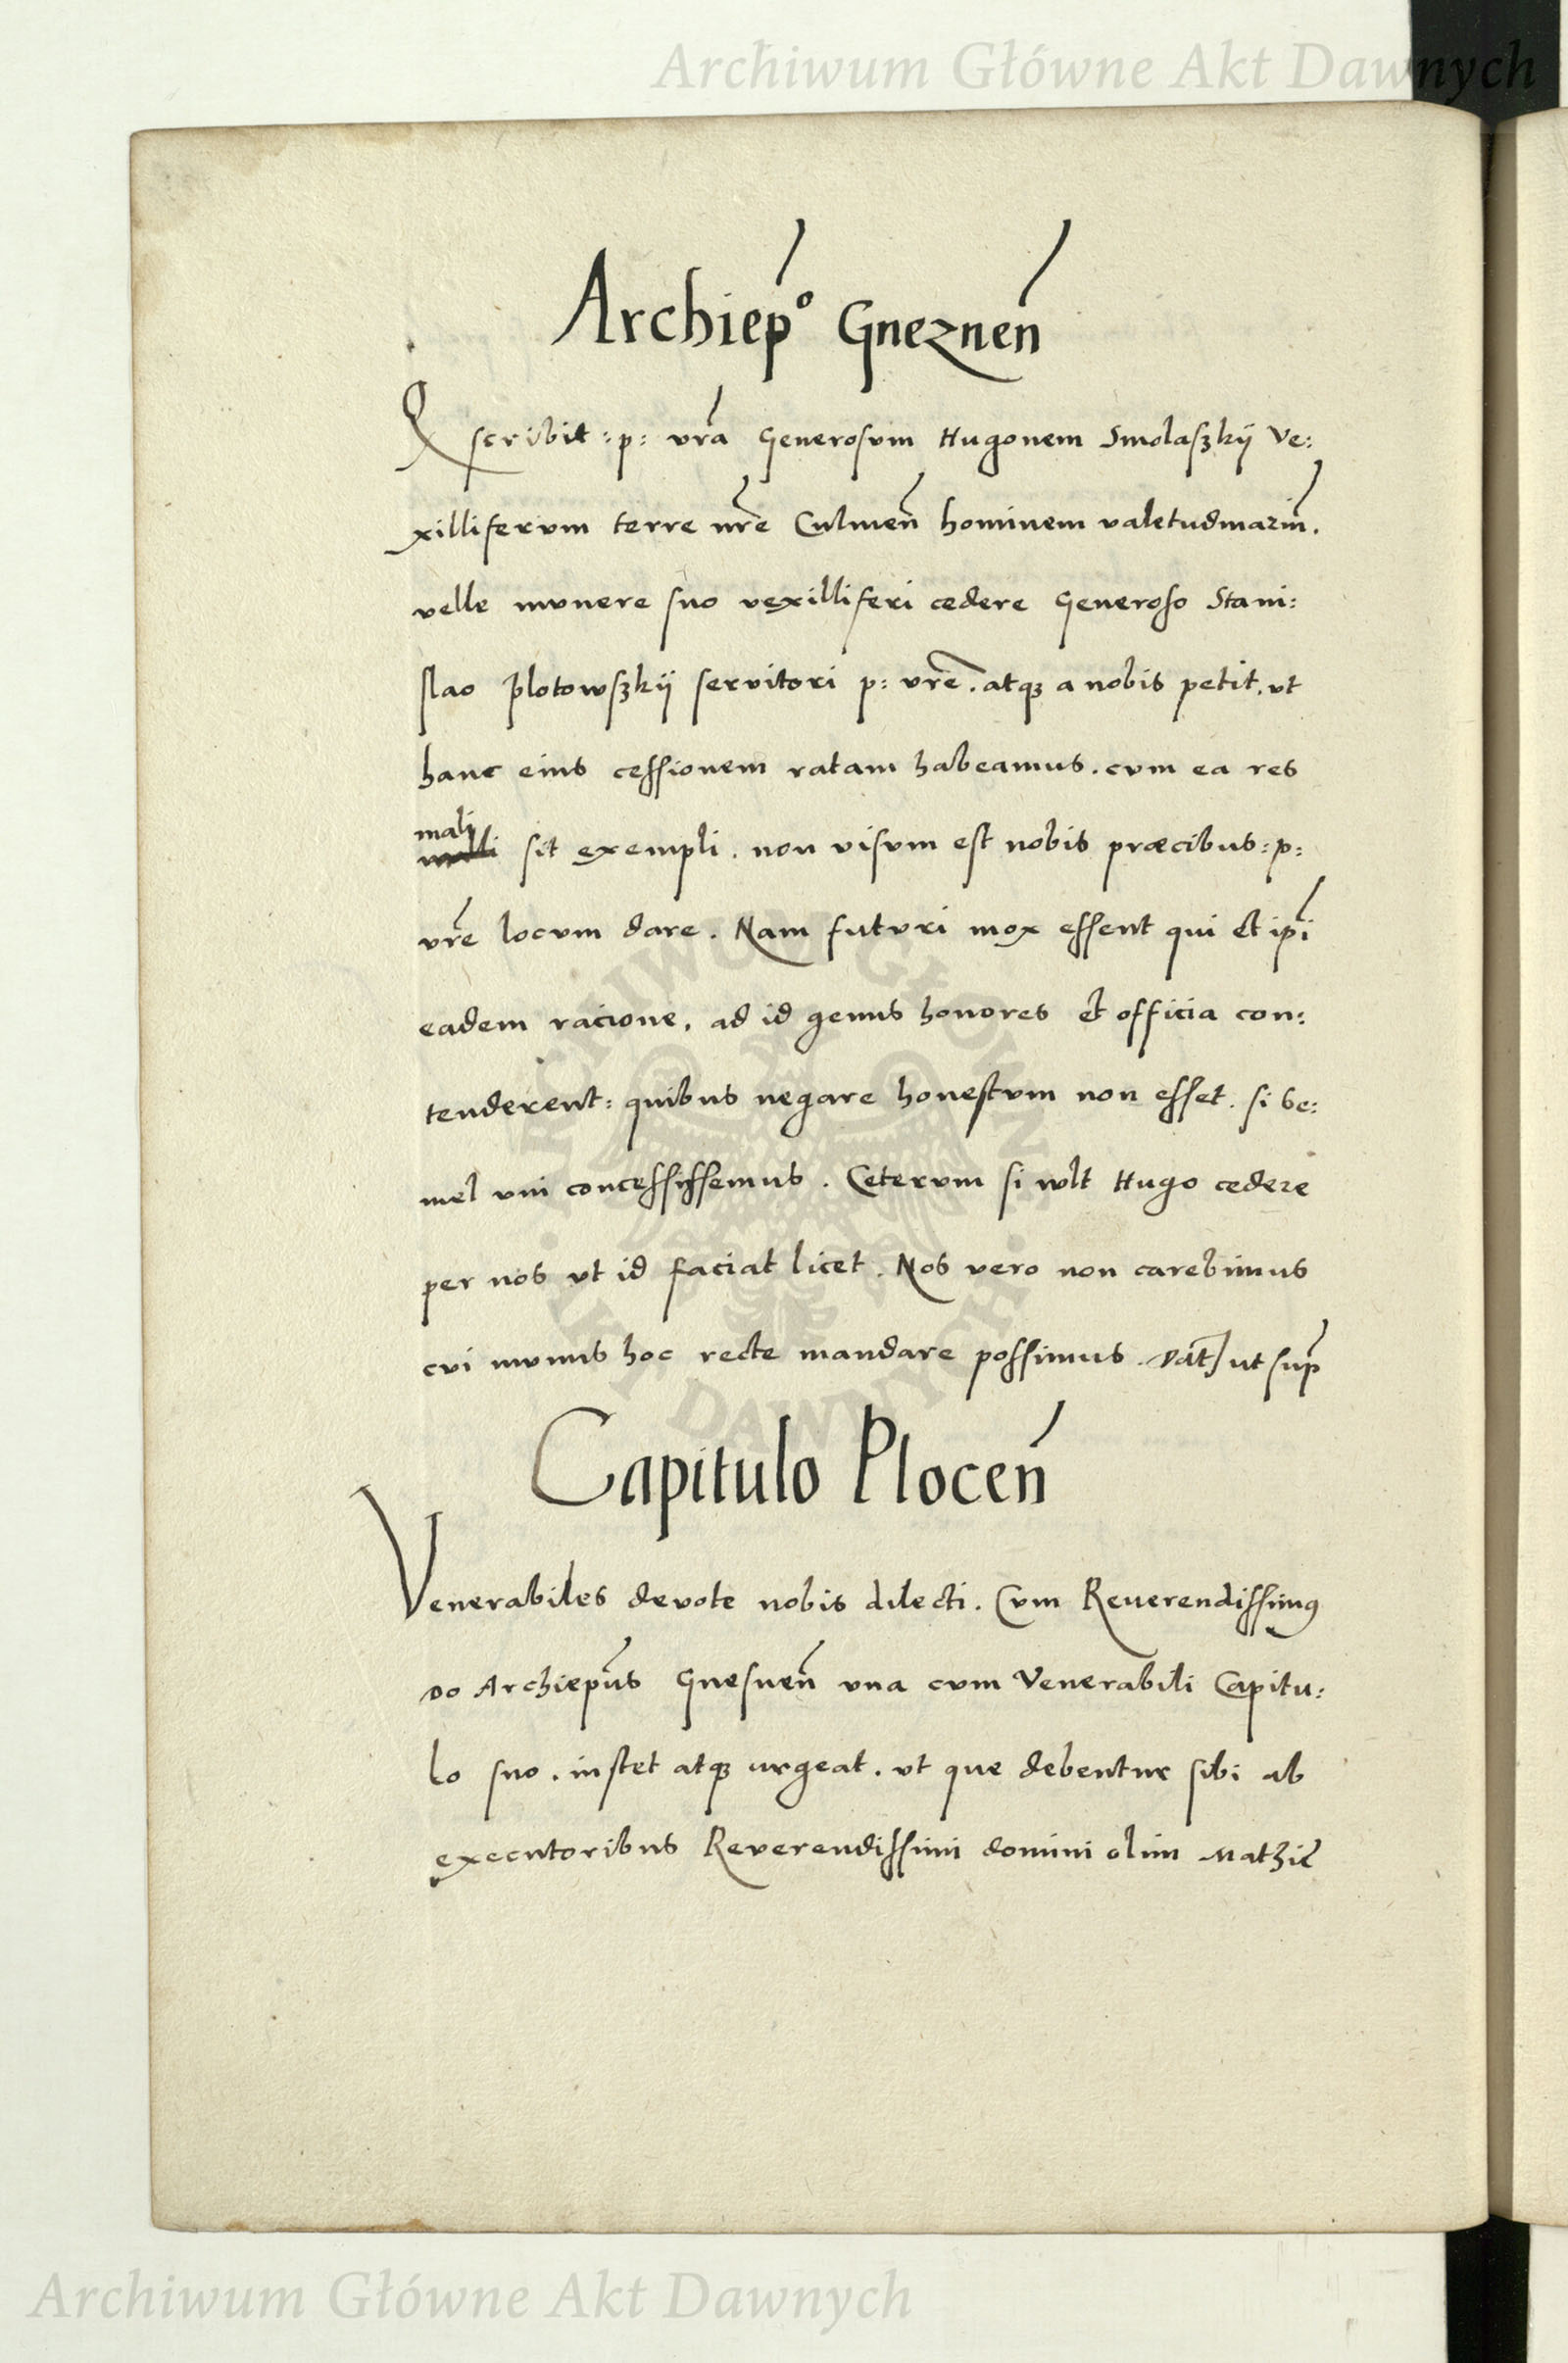 Archiwum Główne Akt Dawnych
Archiep̃o Gneznen̄
Q scribit :p: vrã Generosvm Hugonem Smolaszkij Ve:
xillifervm terre nrẽ Culmen̄ hominem valetudinariũ.
velle mvnere suo vexilliferi cedere Generoso Stani:
slao Plotowszkij servitori p: vrẽ. atqȝ a nobis petit. vt
hanc eius cessionem ratam habeamus. cvm ea res
mali
sit exempli. non visvm est nobis præcibus :p:
vrẽ locvm dare. Nam futvri mox essent qui et ip̃i
eadem racione, ad id genus honores et officia con:
tenderent: quibus negare honestvm non esset. si se:
mel vni concessissemus. Cetervm si wlt Hugo cedere
per nos vt id faciat licet. Nos vero non carebimus
cvi mvnus hoc recte mandare possimus. Dat̃ ut sup̃
Capitulo Plocen̄
Venerabiles devote nobis dilecti. Cvm Reuerendissimꝯ
Do Archiep̃us Gnesnen̄ vna cvm Venerabili Capitu:
lo suo. instet atqȝ urgeat. vt que debentur sibi ab
executoribus Reverendissimi domini olim Mathie
ARCHIWUM GŁÓWNE
AKT DAWNYCH
Archiwum Główne Akt Dawnych